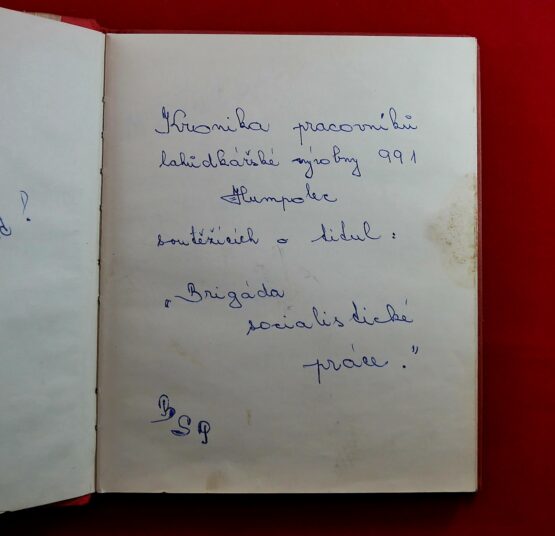 Kronika pracovníků
lahůdkářské výrobny 991
Humpolec
soutěžících o titul:
„Brigáda
socialistické
práce."
B
S P